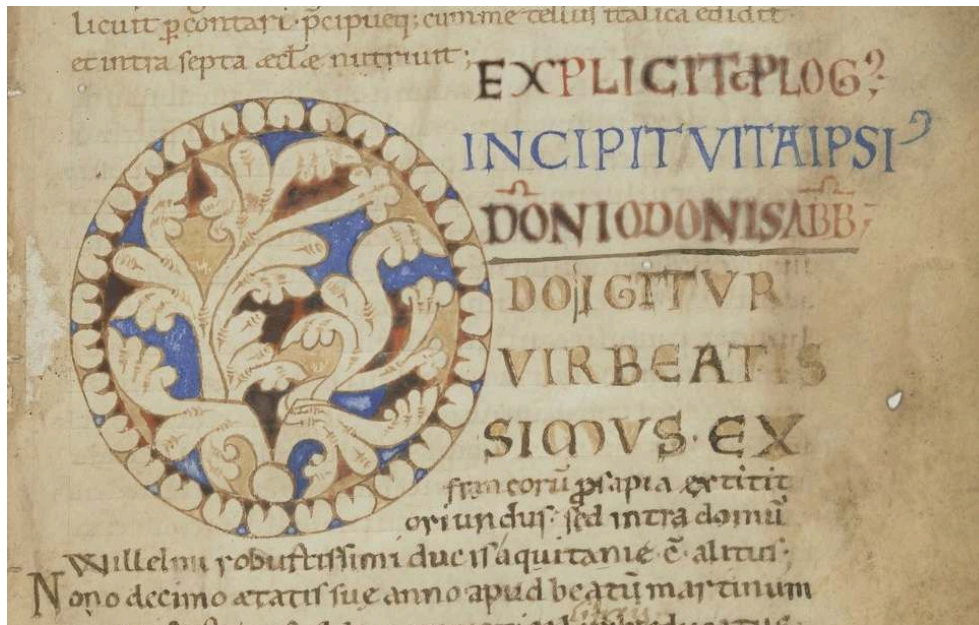 licuit pcontari. pcipueq; cum me tellus italica edidit.
et intra septa æcclæ nutriuit;
EXPLICIT PLOG
INCIPIT VITA IPSI
DONI ODONIS ABB;
DO IGITVR
VIR BEATIS
SIMVS. EX
francorū prosapia extitit
oriundus. sed intra domū
Willelmi robustissimi ducis aquitanie ē alitus.
Nono decimo ætatis sue anno apud beatū martinum